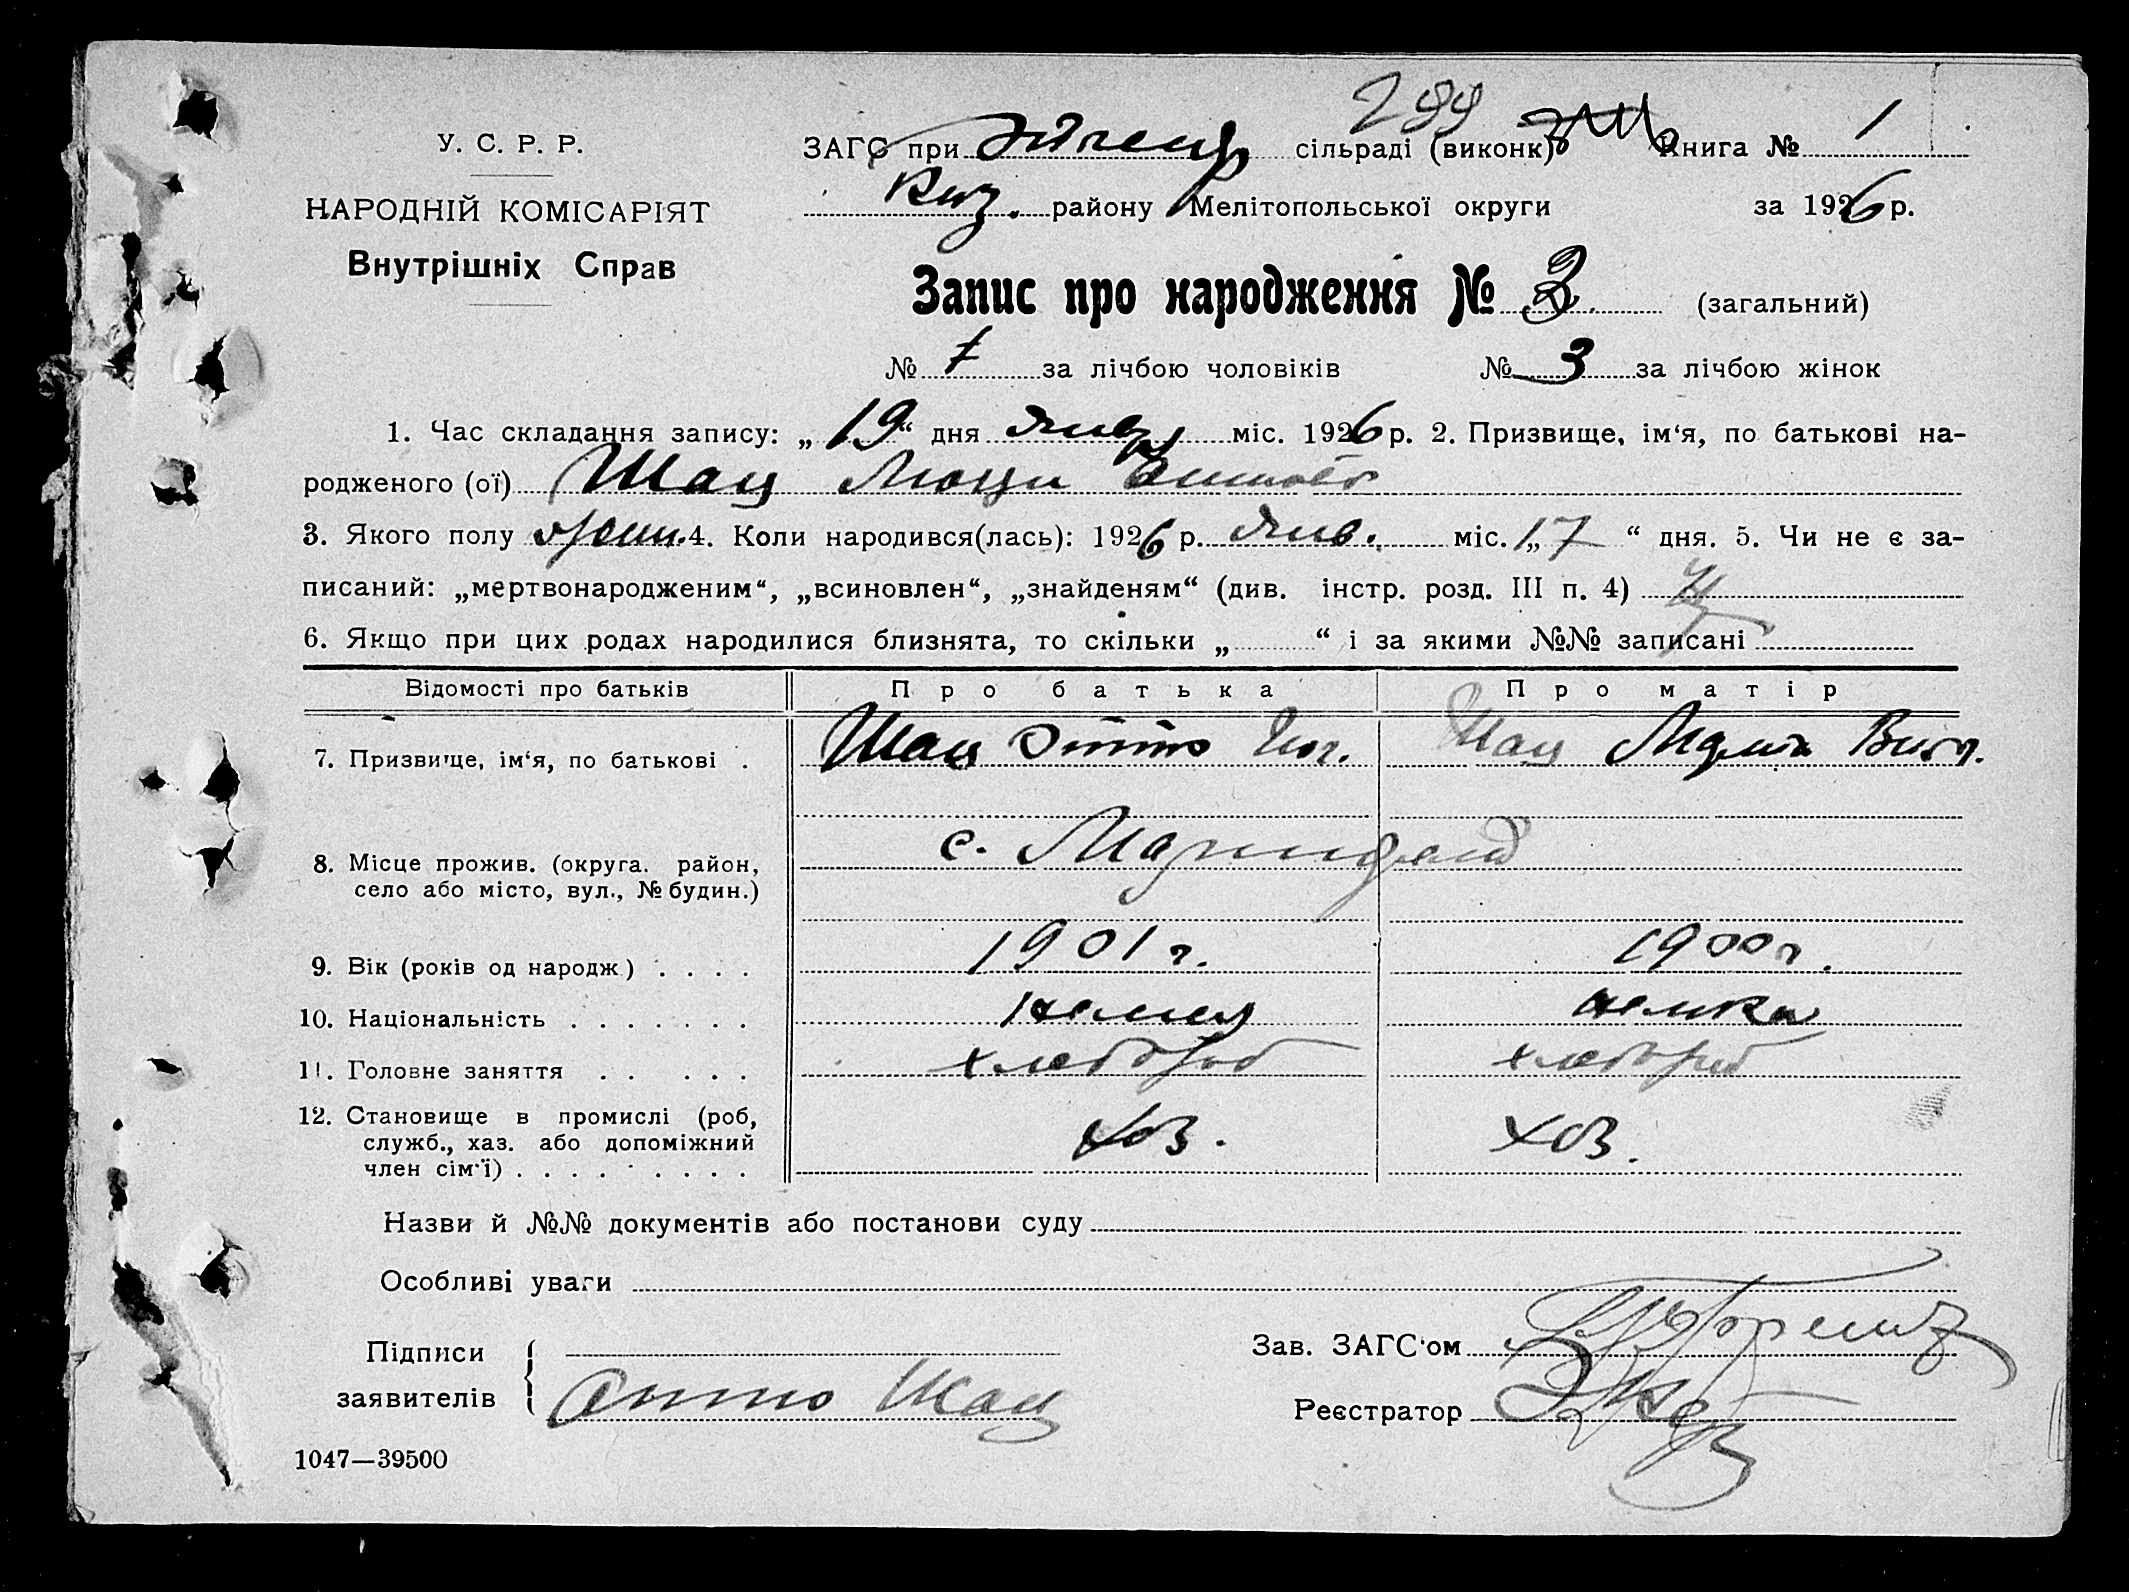 299
У. С. Р. Р.
ЗАГС при сільраді (виконк) Книга № 1
НАРОДНІЙ КОМІСАРІЯТ
район Мелітопольської округи за 1926 р.
Внутрішніх Справ
Запис про народження № (загальний)
№ за лічбою чоловіків № 3 за лічбою жінок
1. Час складання запису: „19“ дня Январ міс. 1926 р. 2. Призвище, ім‘я, по батькові на-
родженого (ої) Шац
3. Якого полу жен. 4. Коли народився(лась): 1926 р. Янв. міс. „17“ дня. 5. Чи не є за-
писаний: „мертвонародженим“, „всиновлен“, „знайденям“ (див. інстр. розд. III п. 4)
6. Якщо при цих родах народилися близнята, то скільки „ “ і за якими №№ записані
Відомості про батьків Про батька Про матір
7. Призвище, ім‘я, по батькові . Шац Отто Шац
8. Місце прожив. (округа. район,
село або місто, вул., № будин.)
с. Маринфельд
9. Вік (років од народж.) . . . . 1901 г. 1900 г.
10. Національність . . . . . . . немец немка
11. Головне заняття . . . . . хлебороб хлебороб
12. Становище в промислі (роб,
служб., хаз. або допоміжний
член сім‘ї) . . . . . . . . .
хоз. хоз.
Назви й №№ документів або постанови суду
Особливі уваги
Підписи
заявителів
Отто Шац
Зав. ЗАГС‘ом
Реєстратор
1047—39500